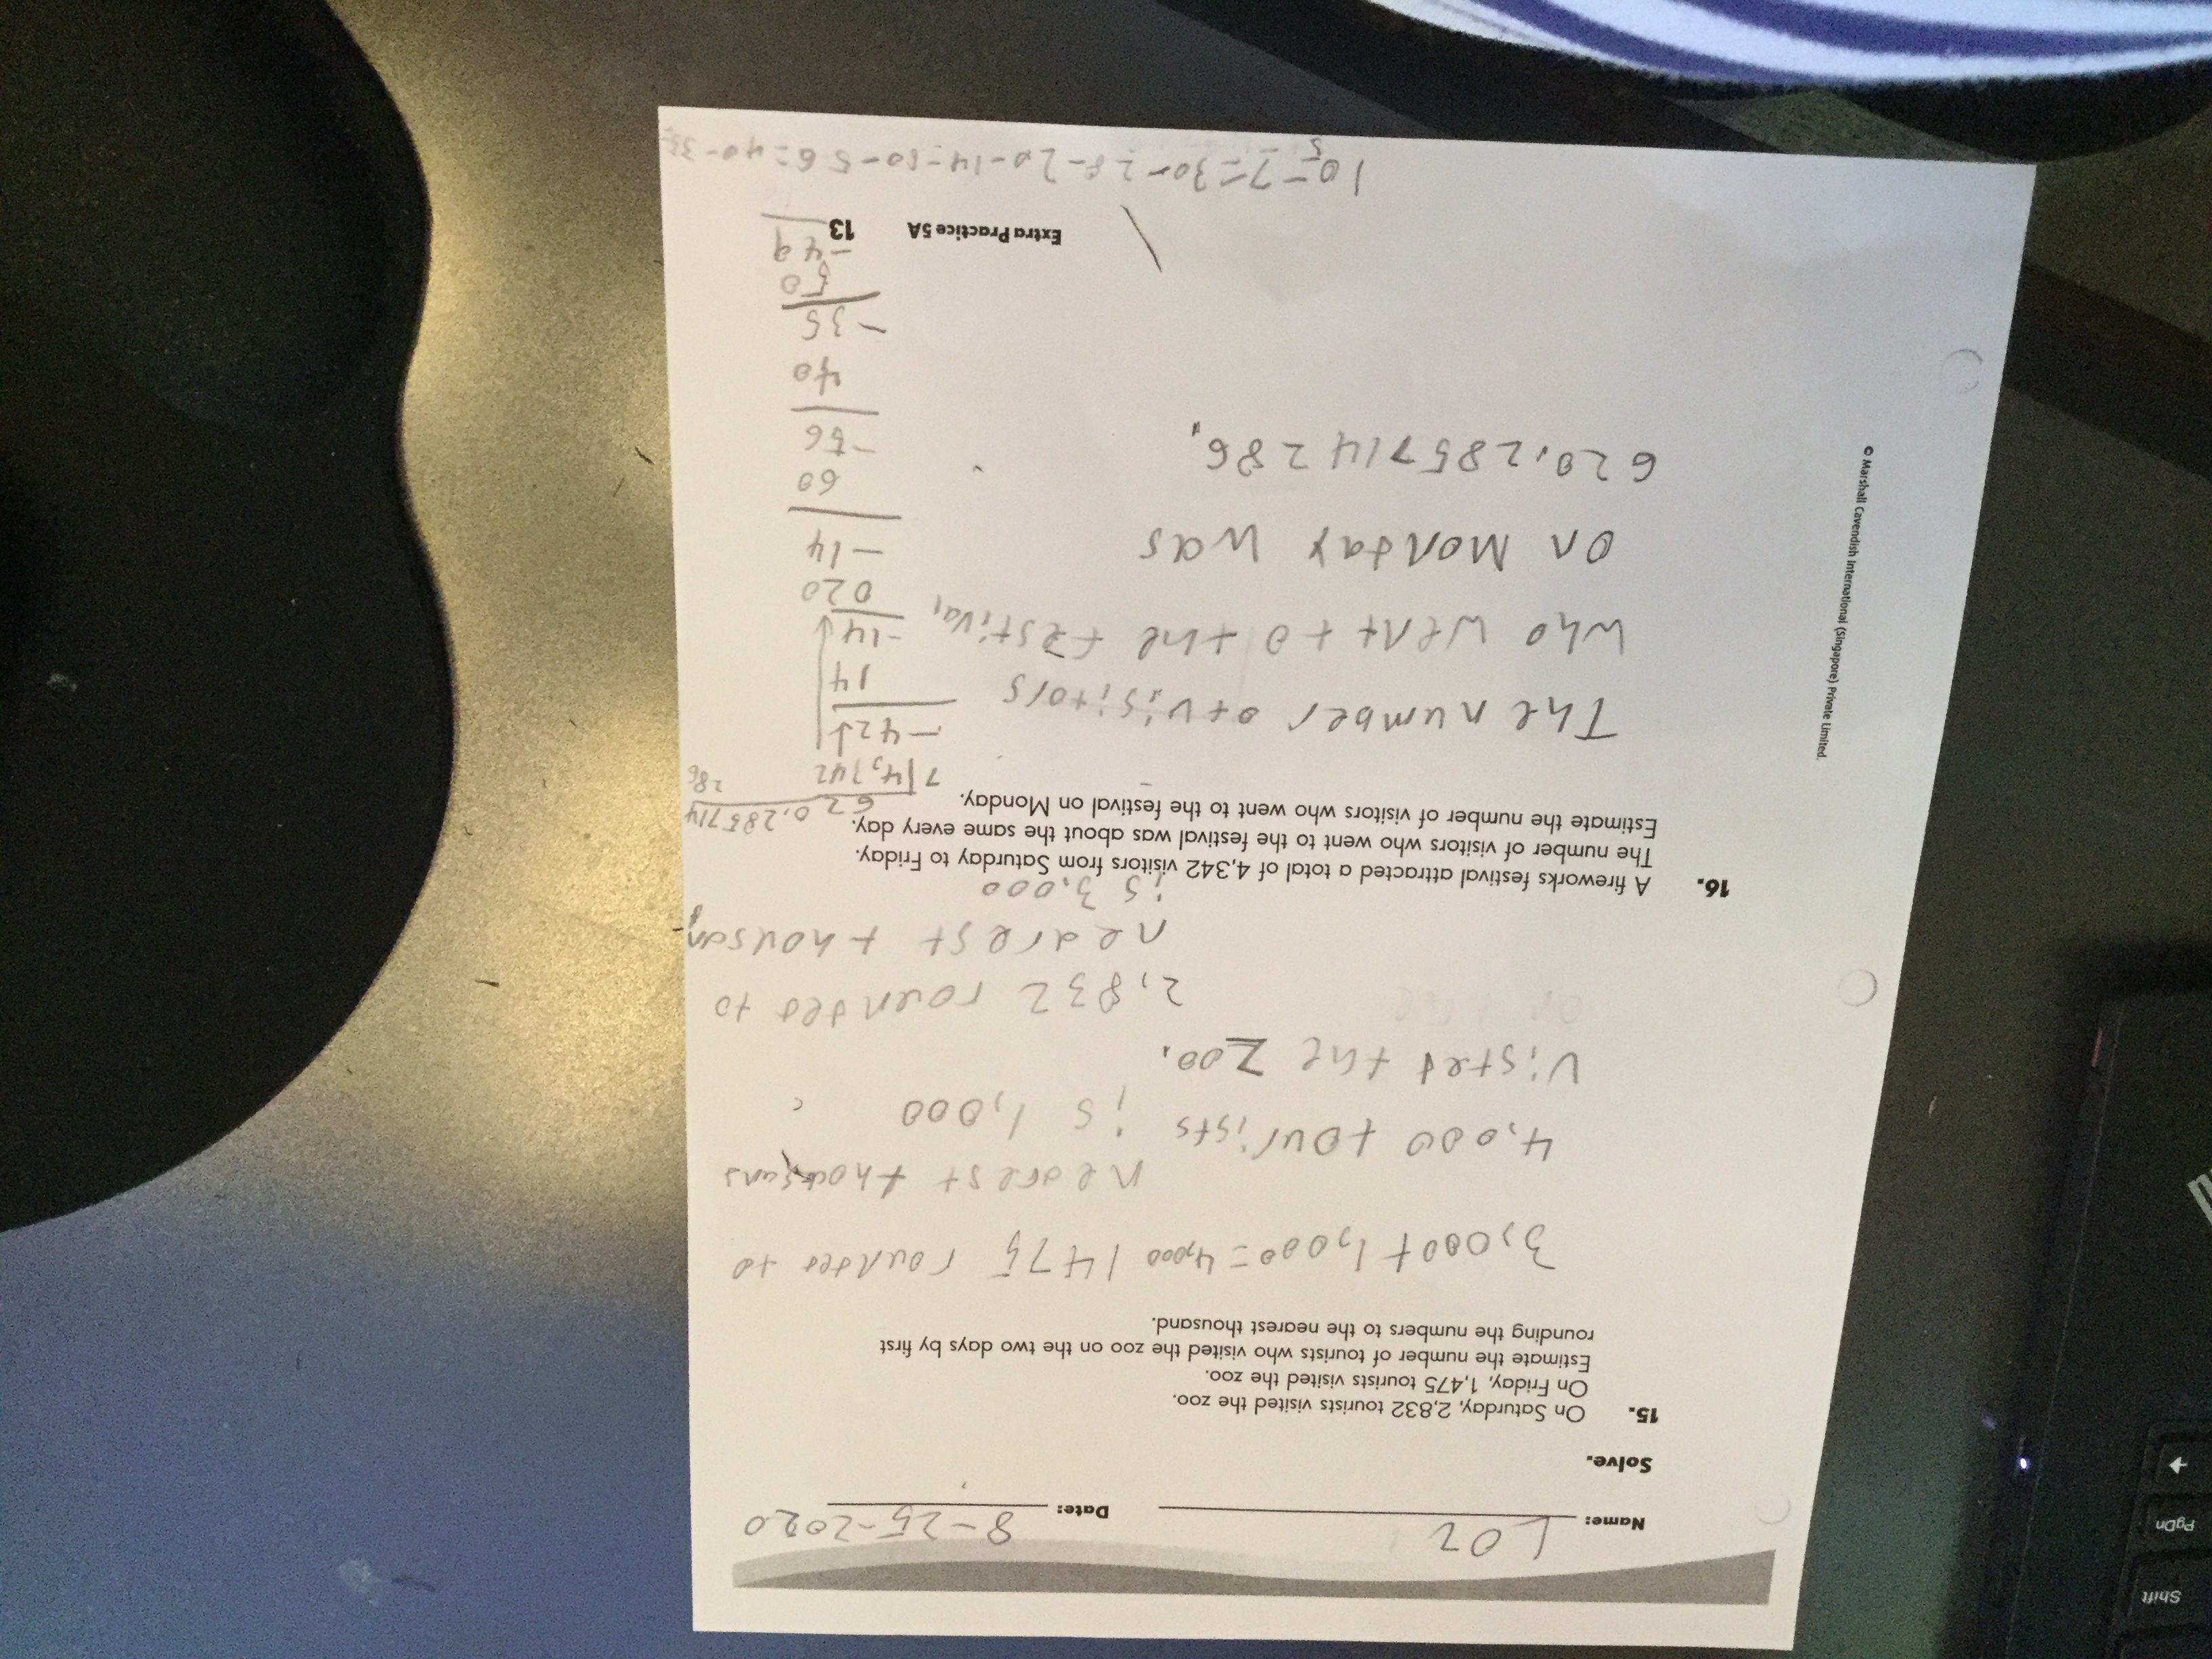 Shift
PgDn
Name: LOZ
Date: 8-25-2020
Solve.
15. On Saturday, 2,832 tourists visited the zoo.
On Friday, 1,475 tourists visited the zoo.
Estimate the number of tourists who visited the zoo on the two days by first
rounding the numbers to the nearest thousand.
3,000+1,000=4,000
1475 rounded to
nearest thousand
is 1,000
4,000 tourists
Visted the Zoo.
2,832 rounded to
nearest thousand
is 3,000
16. A fireworks festival attracted a total of 4,342 visitors from Saturday to Friday.
The number of visitors who went to the festival was about the same every day.
Estimate the number of visitors who went to the festival on Monday.
The number of visitors
who went to the festival
on Monday was
620.285714286.
620.285714
286
7 4,342
-42
14
-14
020
-14
60
-56
40
-35
50
-49
© Marshall Cavendish International (Singapore) Private Limited.
Extra Practice 5A 13
10-7=30-28-20-14=60-56=40-35=
5